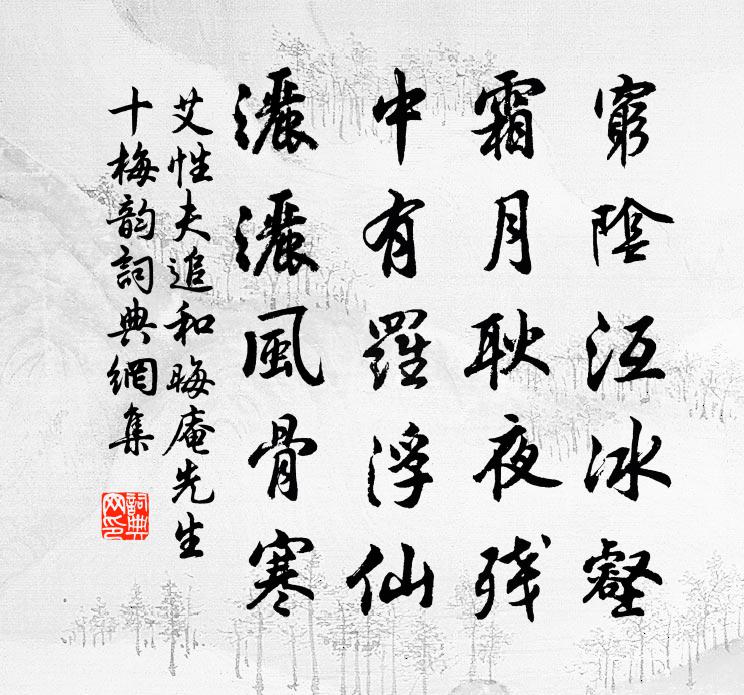 窮陰沍冰壑
霜月耿夜残
中有羅浮仙
灑灑風骨寒
艾性夫追和晦庵先生
十梅韵詞典網集
詞典
网印